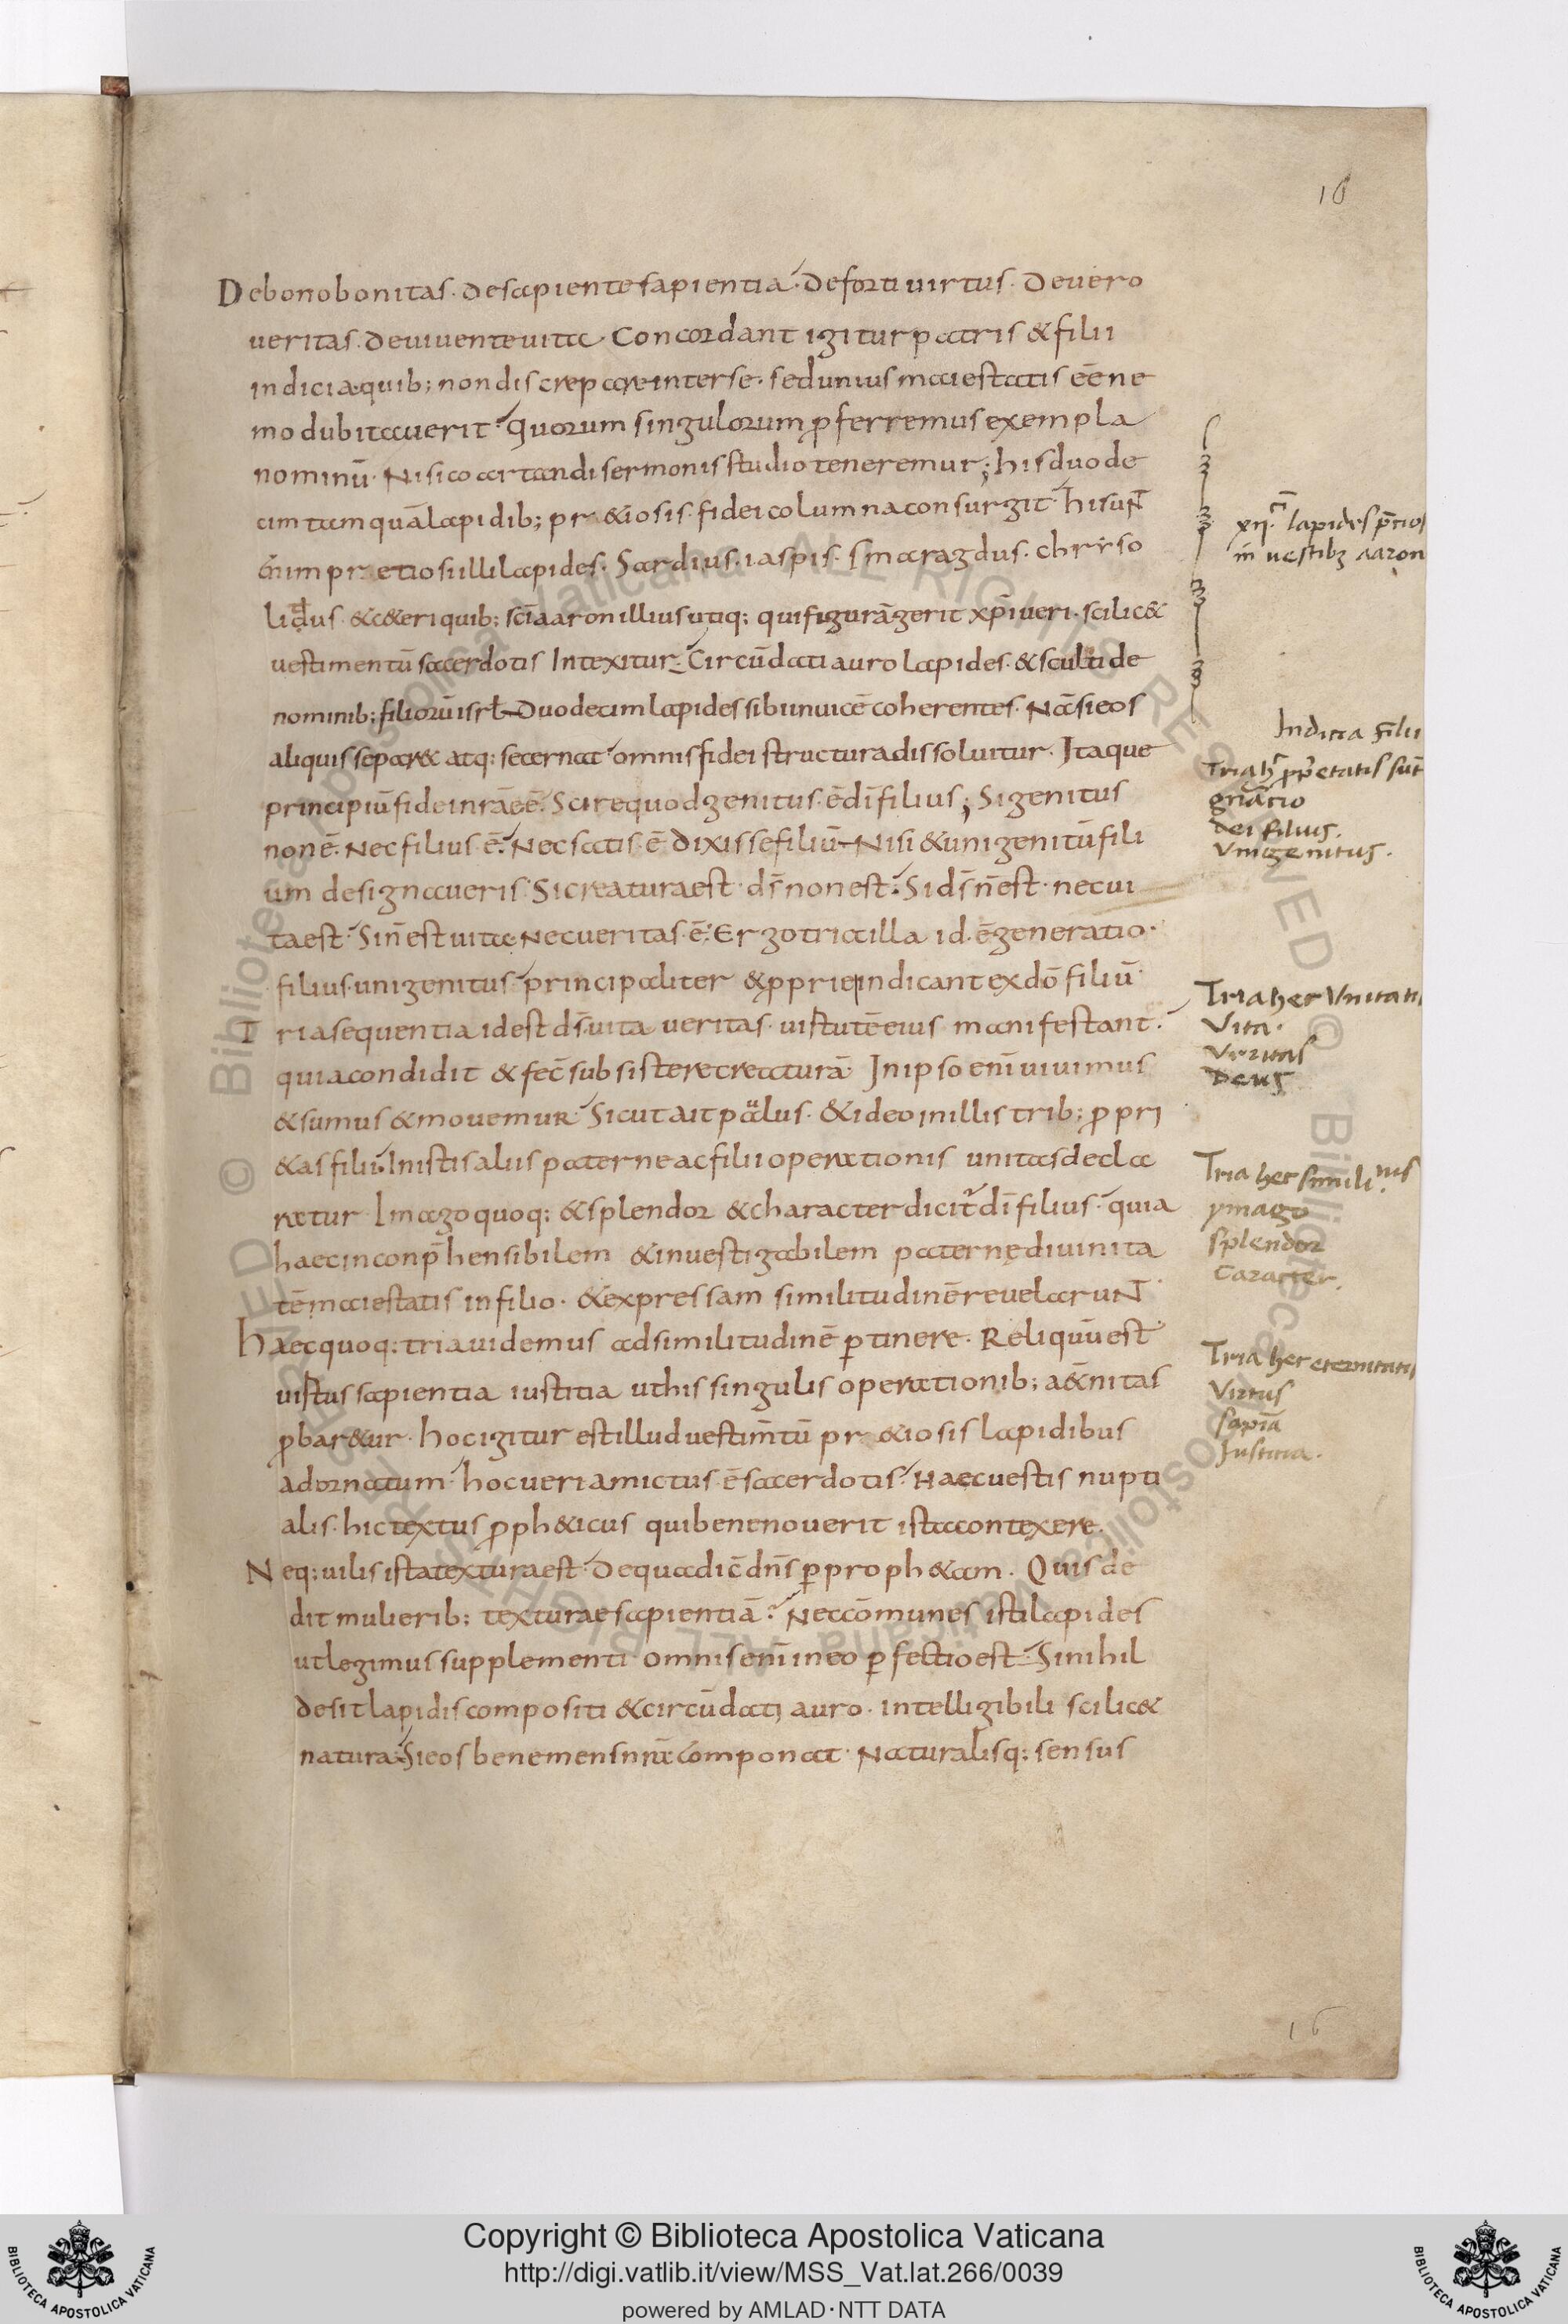 16
De bono bonitas. de sapiente sapientia. de forti uirtus. de uero
ueritas. de uiuente uita. Concordant igitur patris & filii
indicia. quib; non discrepare inter se. sed unius maiestatis eē ne
mo dubitauerit. quorum singulorum ꝓferremus exempla
nominū. Nisi coartandi sermonis studio teneremur; his duode
cim tamquā lapidib; pr&iosis. fidei columna consurgit. hi sunt
enim pretiosi illi lapides. Sardius. iaspis. smaragdus. chryso
lidus &c&eri quib; scīa aron illius utiq; qui figurā gerit xp̄i ueri. scilic&
uestimentū sacerdotis Intexitur. Circūdati auro lapides. & sculti de
nominib; filiorū isrł. Duodecim lapides sibi inuicē coherentes. Nā si eos
aliquis separ& atq; secernat omnis fidei structura dissoluitur. Itaque
principiū fidei nrāe ē. Scire quod genitus. ē dī filius; Si genitus
non ē. Nec filius ē. Nec satis. ē dixisse filiū. Nisi & unigenitū fili
um designaueris. Si creatura est. ds̄ non est. Si ds̄ n̄ est. nec ui
ta est. Si n̄ est uita. Nec ueritas. ē. Ergo tria illa id. ē generatio.
filius. unigenitus. principaliter & ꝓprie indicant ex dō filiū.
Tria sequentia id est ds̄. uita ueritas. uirtutē eius manifestant.
quia condidit & fec̄ subsistere creaturā. In ipso enī uiuimus
& sumus & mouemur. Sicut ait paulus. & ideo in illis trib; ꝓpri
&as filii. In istis aliis paterne ac filii operationis unitas decla
ratur. Imago quoq; & splendor & character dicit̄ dī filius. quia
haec inconp̄hensibilem & inuestigabilem paternę diuinita
tē maiestatis in filio. & expressam similitudinē reuelarunt.
haec quoq; tria uidemus ad similitudinē ꝑtinere. Reliquū est
uirtus sapientia iustitia ut his singulis operationib; a&nitas
ꝓbar&ur. hoc igitur est illud uestim̄tū pr&iosis lapidibus
adornatum. hoc ueri amictus. ē sacerdotis. Haec uestis nupti
alis. hic textus ꝓph&icus qui bene nouerit ista contexere.
Neq; uilis ista textura est. De qua dic̄ dn̄s ꝑ proph&am. Quis de
dit mulierib; texturae sapientiā. Nec cōmunes isti lapides
ut legimus supplementi. omnis enī in eo ꝑfectio est. Si nihil
desit lapidis compositi & circūdati auro. intelligibili scilic&
natura. Si eos bene mens nr̄a componat. Naturalisq; sensus
xij. lapides p̄cios
in uestibꝫ aaron
Indicia filii
Tria h̄ ꝓpetatis sūt
gn̄acio
dei filius.
Vnigenitus.
Tria hec Vnitati
Vita.
Veritas
Deus
Tria hec similinis
ymago
splendor
Caracter.
Tria hec eternitatis
Virtus
sapiā
Justicia.
16
© Biblioteca Apostolica Vaticana ALL RIGHTS RESERVED © Biblioteca Apostolica Vaticana ALL RIGHTS RESERVED
Copyright © Biblioteca Apostolica Vaticana
http://digi.vatlib.it/view/MSS_Vat.lat.266/0039
powered by AMLAD·NTT DATA
BIBLIOTECA APOSTOLICA VATICANA
BIBLIOTECA APOSTOLICA VATICANA